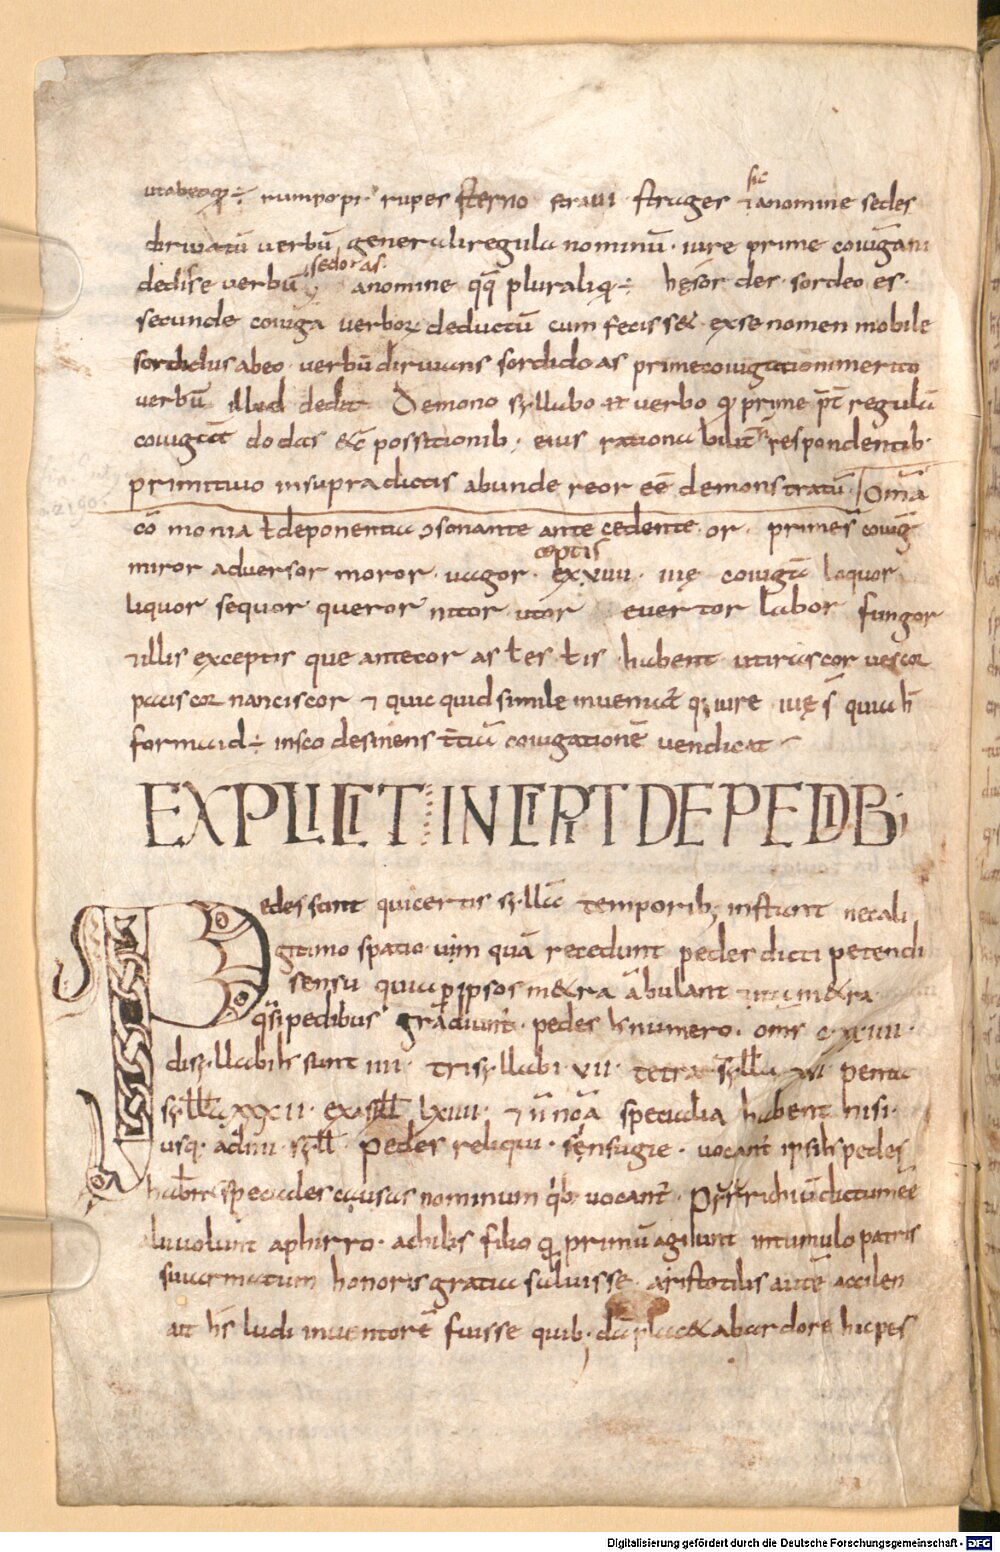 rumpo pi · rupes sterno straui strages ⁊ anomine sedes
sic
diriuatū uerbū generali regula nominū · iure prime coniugam
dedisse uerbū anomine qđ plurali ÷ hęsor des · sordeo es ·
sedo as ·
secunde coniuga uerboꝝ deductū cum fecisset exse nomen mobile
sordidus abeo uerbū diriuans sordido as prime coniugationi merito
uerbū illud dedit Demono syllabo aut uerbo prime regulā
coniugat do das &c̄ possitionib · eius respondentib ·
primitiuo insupradictis abunde reor eē demonstratū Om̄a
cōmonia ł deponentia ɔsonante ante cedente or · prime s̄ coniug̃
miror aduersor moror · uagor · exxuiii · iiię coniugat̄ loquor
ceptis
liquor sequor queror nitor utor euertor labor fungor
⁊ illis exceptis que ante cor as ł es ł is · habent ut irascor uescoꝝ
paciscor nanciscor ⁊ quicquid simile inueniat̄ iure iiię s̄ quia h̄
forma id ÷ insco desinens t̄tiā coniugationē uendicat
EXPLICIT INCIPIT DE PEDIB;
Pedes sunt qui certis syllab̄ temporib; instant nec ali
gitimo spatio uim quā recedunt pedes dicti petendi
sensu quia ꝑ ipsos metra ābulant ⁊ metra
q̄si pedibus gradiunt̄ · pedes h̄ numero · om̄s c · xx iiii ·
disyllabi h̄ sunt iiii · trisyllabi VII · tetrasyll̄a xui penta
syll̄a xxxii · exasyll̄ lxiiii · ⁊ n̄ noa specialia habent nisi ·
usq · ad iiii · syll̄ Pedes reliqui · senzugie · uocant̄ ipsi h̄ pedes
habent speciales causas nominum q̇b uocant̄ · Pyrrichiū dictum eē
aliuolunt aphirro · achilis filio primū agilunt intumulo patris
suu armatum honoris gratia saluisse · aristotilis autē accilen
ait h̄s ludi inuentorē fuisse quib · dā placet abardore hi pes
Digitalisierung gefördert durch die Deutsche Forschungsgemeinschaft - DFG